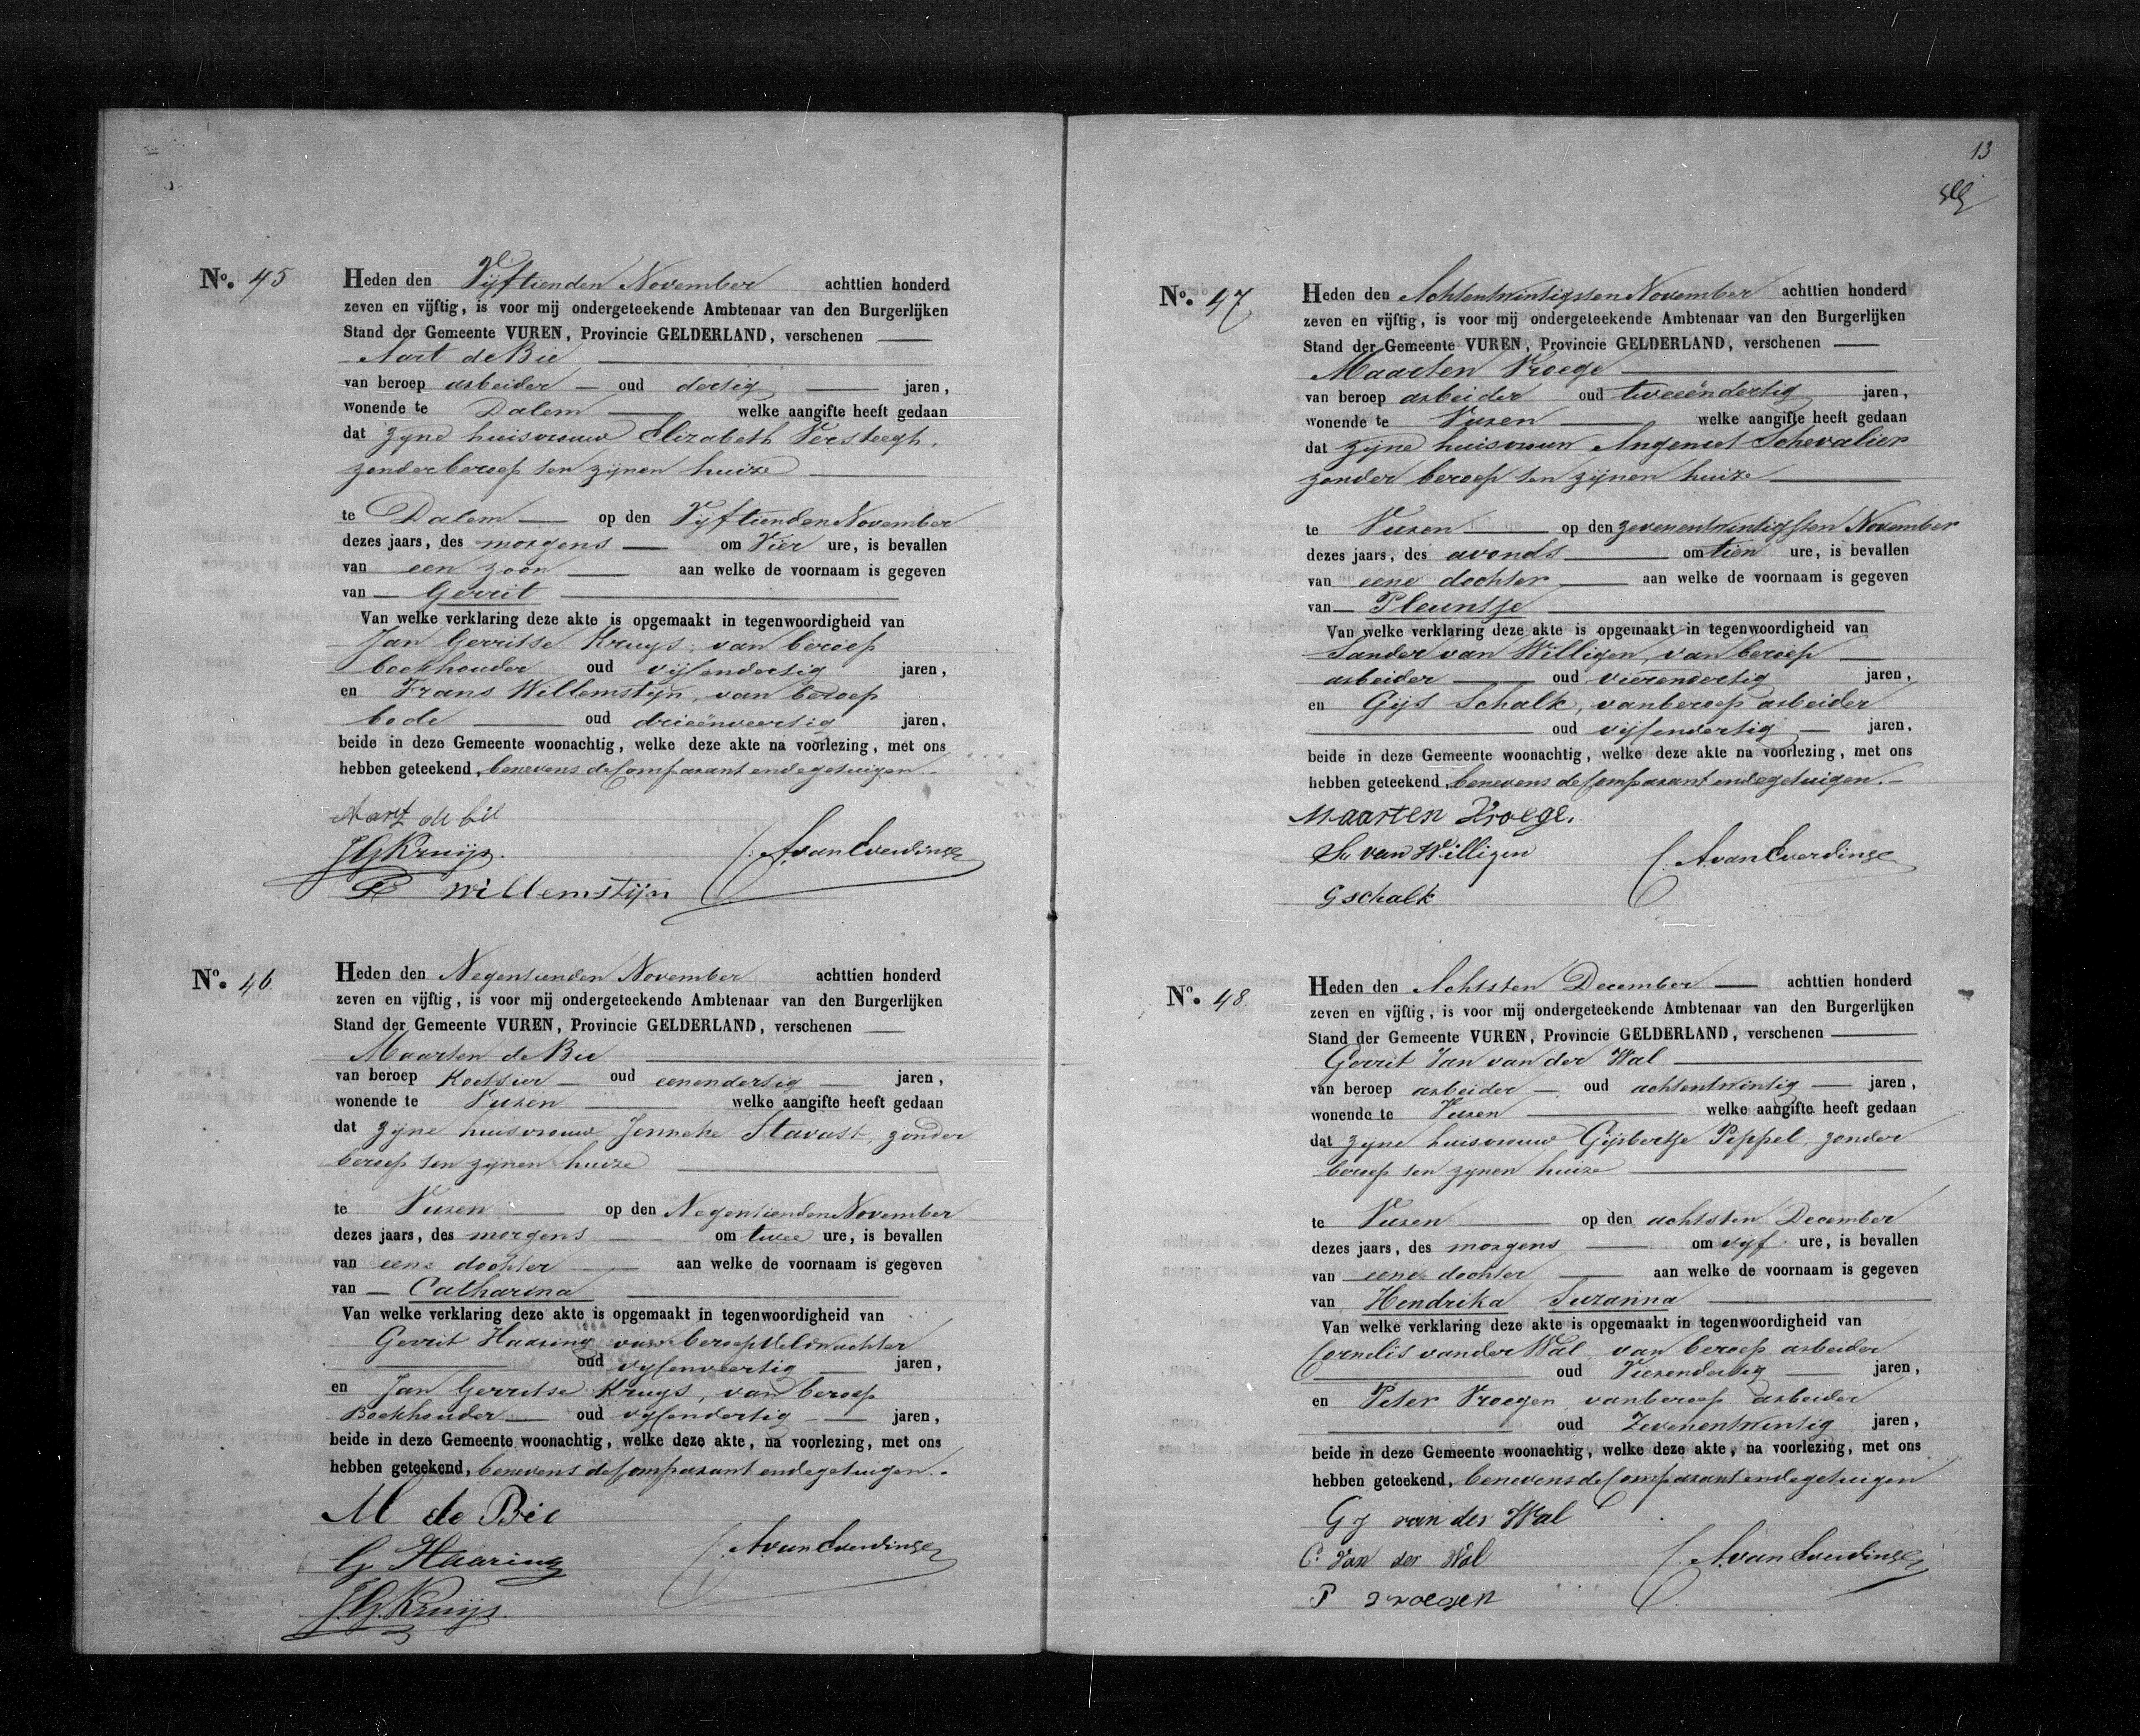 No. 45
Heden den Vijftienden November achttien honderd
zeven en vijftig, is voor mij ondergeteekende Ambtenaar van den Burgerlijken
Stand der Gemeente VUREN, Provincie GELDERLAND, verschenen
Aart de Bie
van beroep arbeider oud dertig jaren,
wonende te Dalem welke aangifte heeft gedaan
dat zijne huisvrouw Elizabeth Versteegh,
zonder beroep ten zijnen huize
te Dalem op den Vijftienden November
dezes jaars, des morgens om Vier ure, is bevallen
van een zoon aan welke de voornaam is gegeven
van Gerrit
Van welke verklaring deze akte is opgemaakt in tegenwoordigheid van
Jan Gerritse Kruys, van beroep
boekhouder oud vijfendertig jaren,
en Frans Willemstijn, van beroep
bode oud drieënveertig jaren,
beide in deze Gemeente woonachtig, welke deze akte na voorlezing, met ons
hebben geteekend, benevens de Comparant en de getuigen.
Aart de bie
JGKruijs.
A. van Everdingen
Willemstijn
No. 46.
Heden den Negentienden November achttien honderd
zeven en vijftig, is voor mij ondergeteekende Ambtenaar van den Burgerlijken
Stand der Gemeente VUREN, Provincie GELDERLAND, verschenen
Maarten de Bie
van beroep Koetsier oud eenendertig jaren,
wonende te Vuren welke aangifte heeft gedaan
dat zijne huisvrouw Jenneke Stavast, zonder
beroep ten zijnen huize
te Vuren op den Negentienden November
dezes jaars, des morgens om twee ure, is bevallen
van eene dochter aan welke de voornaam is gegeven
van Catharina
Van welke verklaring deze akte is opgemaakt in tegenwoordigheid van
Gerrit Haaring van beroep Veldwachter
oud vijfenveertig jaren,
en Jan Gerritse Kruys, van beroep
Boekhouder oud vijfendertig jaren,
beide in deze Gemeente woonachtig, welke deze akte, na voorlezing, met ons
hebben geteekend, benevens de Comparant en de getuigen.
M de Bie
A. van Everdingen
G Haaring
J.G.Kruijs.
13
No. 47
Heden den Achtentwintigsten November achttien honderd
zeven en vijftig, is voor mij ondergeteekende Ambtenaar van den Burgerlijken
Stand der Gemeente VUREN, Provincie GELDERLAND, verschenen
Maarten Vroege
van beroep arbeider oud tweeëndertig jaren,
wonende te Vuren welke aangifte heeft gedaan
dat zijne huisvrouw Angeniet Schevalier
zonder beroep ten zijnen huize
te Vuren op den zevenentwintigsten November
dezes jaars, des avonds om tien ure, is bevallen
van eene dochter aan welke de voornaam is gegeven
van Pleuntje
Van welke verklaring deze akte is opgemaakt in tegenwoordigheid van
Sander van Willigen, van beroep
arbeider oud vierendertig jaren,
en Gijs Schalk, van beroep arbeider
oud vijfendertig jaren.
beide in deze Gemeente woonachtig, welke deze akte na voorlezing, met ons
hebben geteekend, benevens de Comparant en de getuigen.
Maarten Vroege.
van Willigen
A. van Everdingen
G schalk
No. 48.
Heden den Achtsten December achttien honderd
zeven en vijftig, is voor mij ondergeteekende Ambtenaar van den Burgerlijken
Stand der Gemeente VUREN, Provincie GELDERLAND, verschenen
Gerrit Jan van der Wal
van beroep arbeider oud achtentwintig jaren,
wonende te Vuren welke aangifte heeft gedaan
dat zijne huisvrouw Gijsbertje Pippel, zonder
beroep ten zijnen huize
te Vuren op den achtsten December
dezes jaars, des morgens om vijf ure, is bevallen
van eene dochter aan welke de voornaam is gegeven
van Hendrika Suzanna
Van welke verklaring deze akte is opgemaakt in tegenwoordigheid van
Cornelis van der Wal, van beroep arbeider
oud Vierendertig jaren,
en Peter Vroegen, van beroep arbeider
oud Zevenentwintig jaren,
beide in deze Gemeente woonachtig, welke deze akte, na voorlezing, met ons
hebben geteekend, benevens de Comparant en de getuigen
G J van der Wal
C. Van der Wal
A. van Everdingen
P vroegen